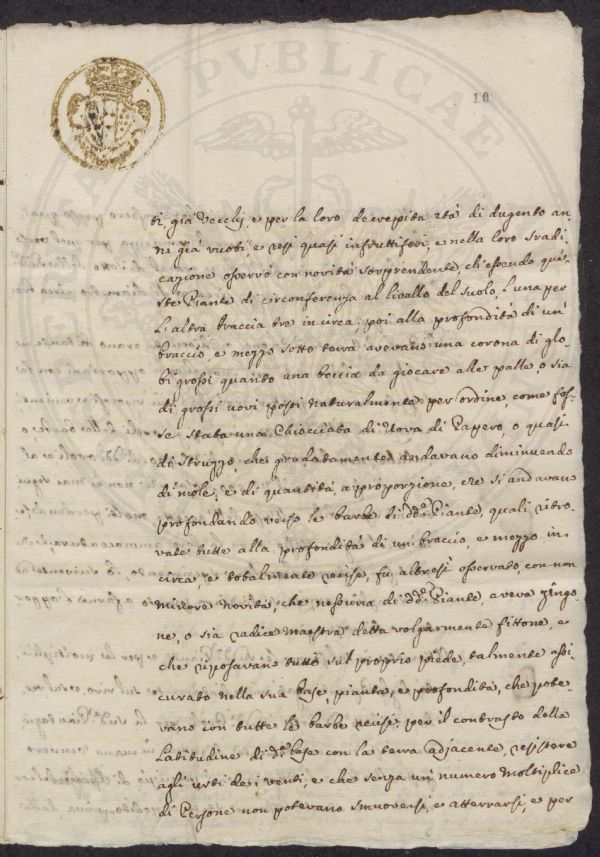 PVBLICAE
10
ti, già vecchj, e per la loro decrepita età di dugento an-
ni già vuoti, e resi quasi infruttiferi, e nella loro sradi-
cazione osservò con novità sorprendente, ch'essendo que-
ste Piante di circonferenza al livello del suolo, l'una per
l'altra braccia tre in circa; poi alla profondità di un
braccio, e mezzo sotto terra avevano una corona di glo-
bi grossi quanto una boccia da giocare alle palle, o sia
di grossi uovi posti naturalmente per ordine, come fos-
se stata una Chiocciata di Uova di Papero, o quasi
di Struzzo, che gradatamente andavano diminuendo
di mole, e di quantità, a proporzione, che si andavano
profondando verso le barbe di dde Piante, quali ritro-
vate tutte alla profondità di un braccio, e mezzo in
circa, e totalmente recise, fu altresì osservato, con non
minore novità, che nessuna di dde Piante, aveva zingo-
ne, o sia radice maestra detta volgarmente fittone, e
che riposavano tutte sul proprio piede, talmente assi-
curato nella sua base, pianta, e profondità, che pote-
vano con tutte le barbe recise per il contrasto della
Latitudine di da base con la terra adjacente, resistere
agli urti de i venti, e che senza un numero moltiplice
di Persone non potevano smuoversi, e atterrarsi, e per